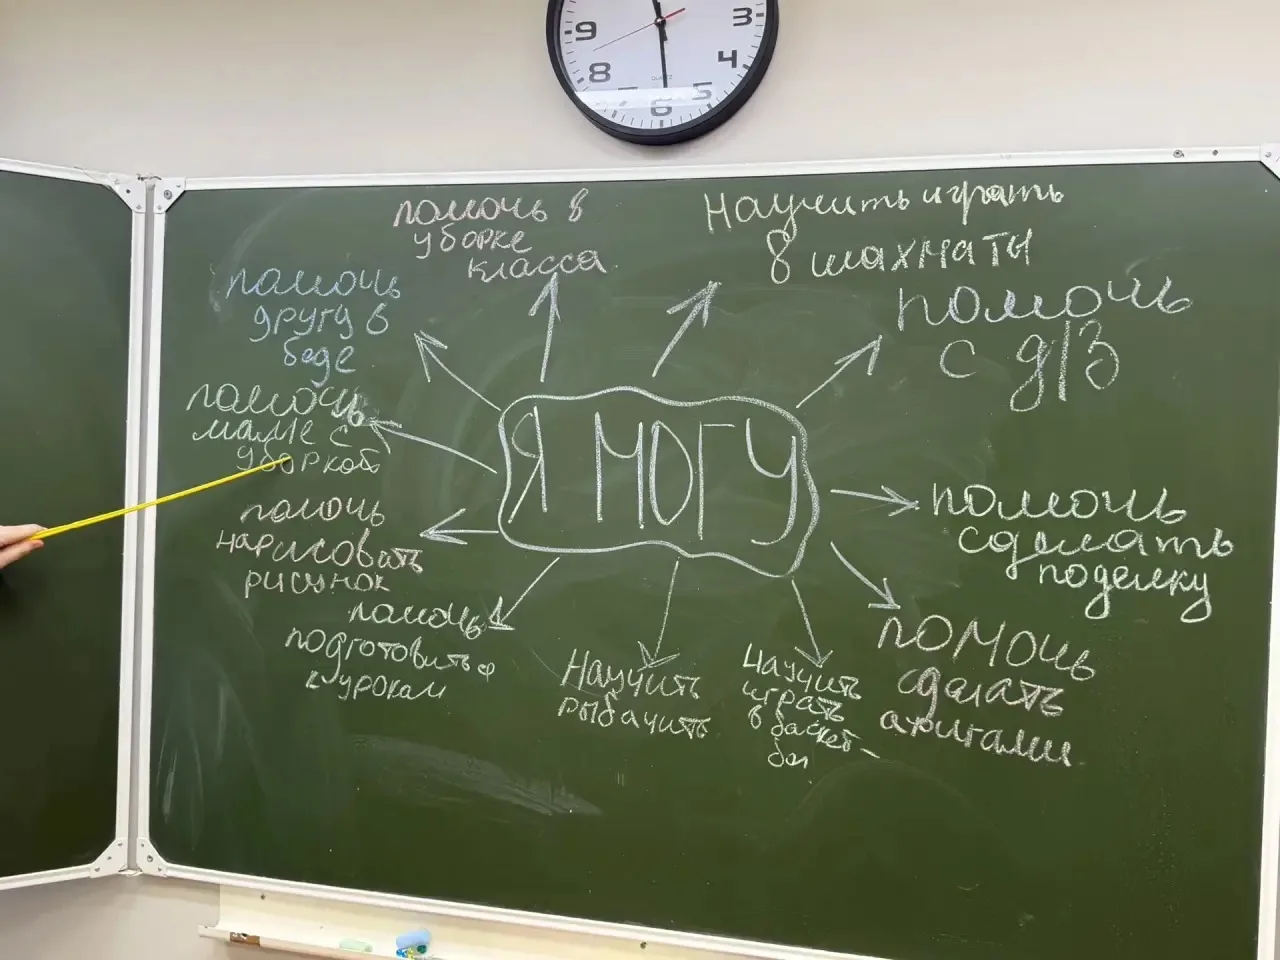 9
3
8
4
7
5
6
QUARTZ
помочь в
уборке
класса
Научить играть
в шахматы
помочь
другу в
беде
помочь
с д/з
помочь
маме с
уборкой
Я МОГУ
помочь
сделать
поделку
помочь
нарисовать
рисунок
помочь
подготовиться
к урокам
Научить
рыбачить
Научить
играть
в баскет-
бол
помочь
сделать
аригами